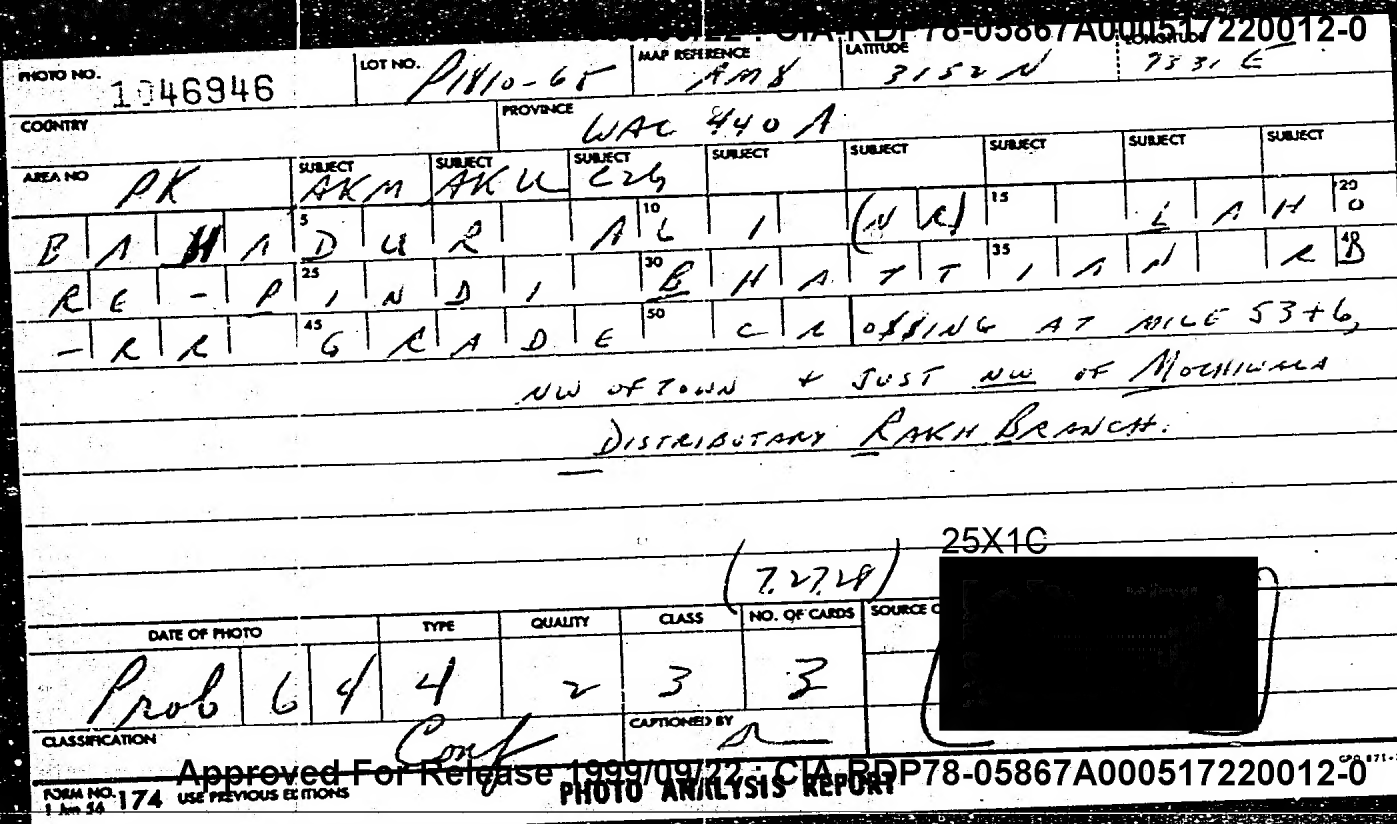 1999/09/22 : CIA-RDP78-05867A000517220012-0
PHOTO NO. 1046946 LOT NO. P1810-65 MAP REFERENCE AMS LATITUDE 3152 N LONGITUDE 7331 E
COUNTRY PROVINCE WAC 440 A
AREA NO PK SUBJECT AKM SUBJECT AKU SUBJECT C26 SUBJECT SUBJECT SUBJECT SUBJECT SUBJECT
BAHADUR ALI (NR) LAHO
RE-PINDI BHATTIAN RD
-RR GRADE CROSSING AT MILE 53+6,
NW OF TOWN + JUST NW OF MOCHIWALA
DISTRIBUTARY RAKH BRANCH.
25X1C
(7.27.28)
DATE OF PHOTO TYPE QUALITY CLASS NO. OF CARDS SOURCE
Prob 64 4 2 3 3
CLASSIFICATION Conf CAPTIONED BY
Approved For Release 1999/09/22 : CIA-RDP78-05867A000517220012-0
FORM NO. 174 USE PREVIOUS EDITIONS PHOTO ANALYSIS REPORT
1 Jun 54